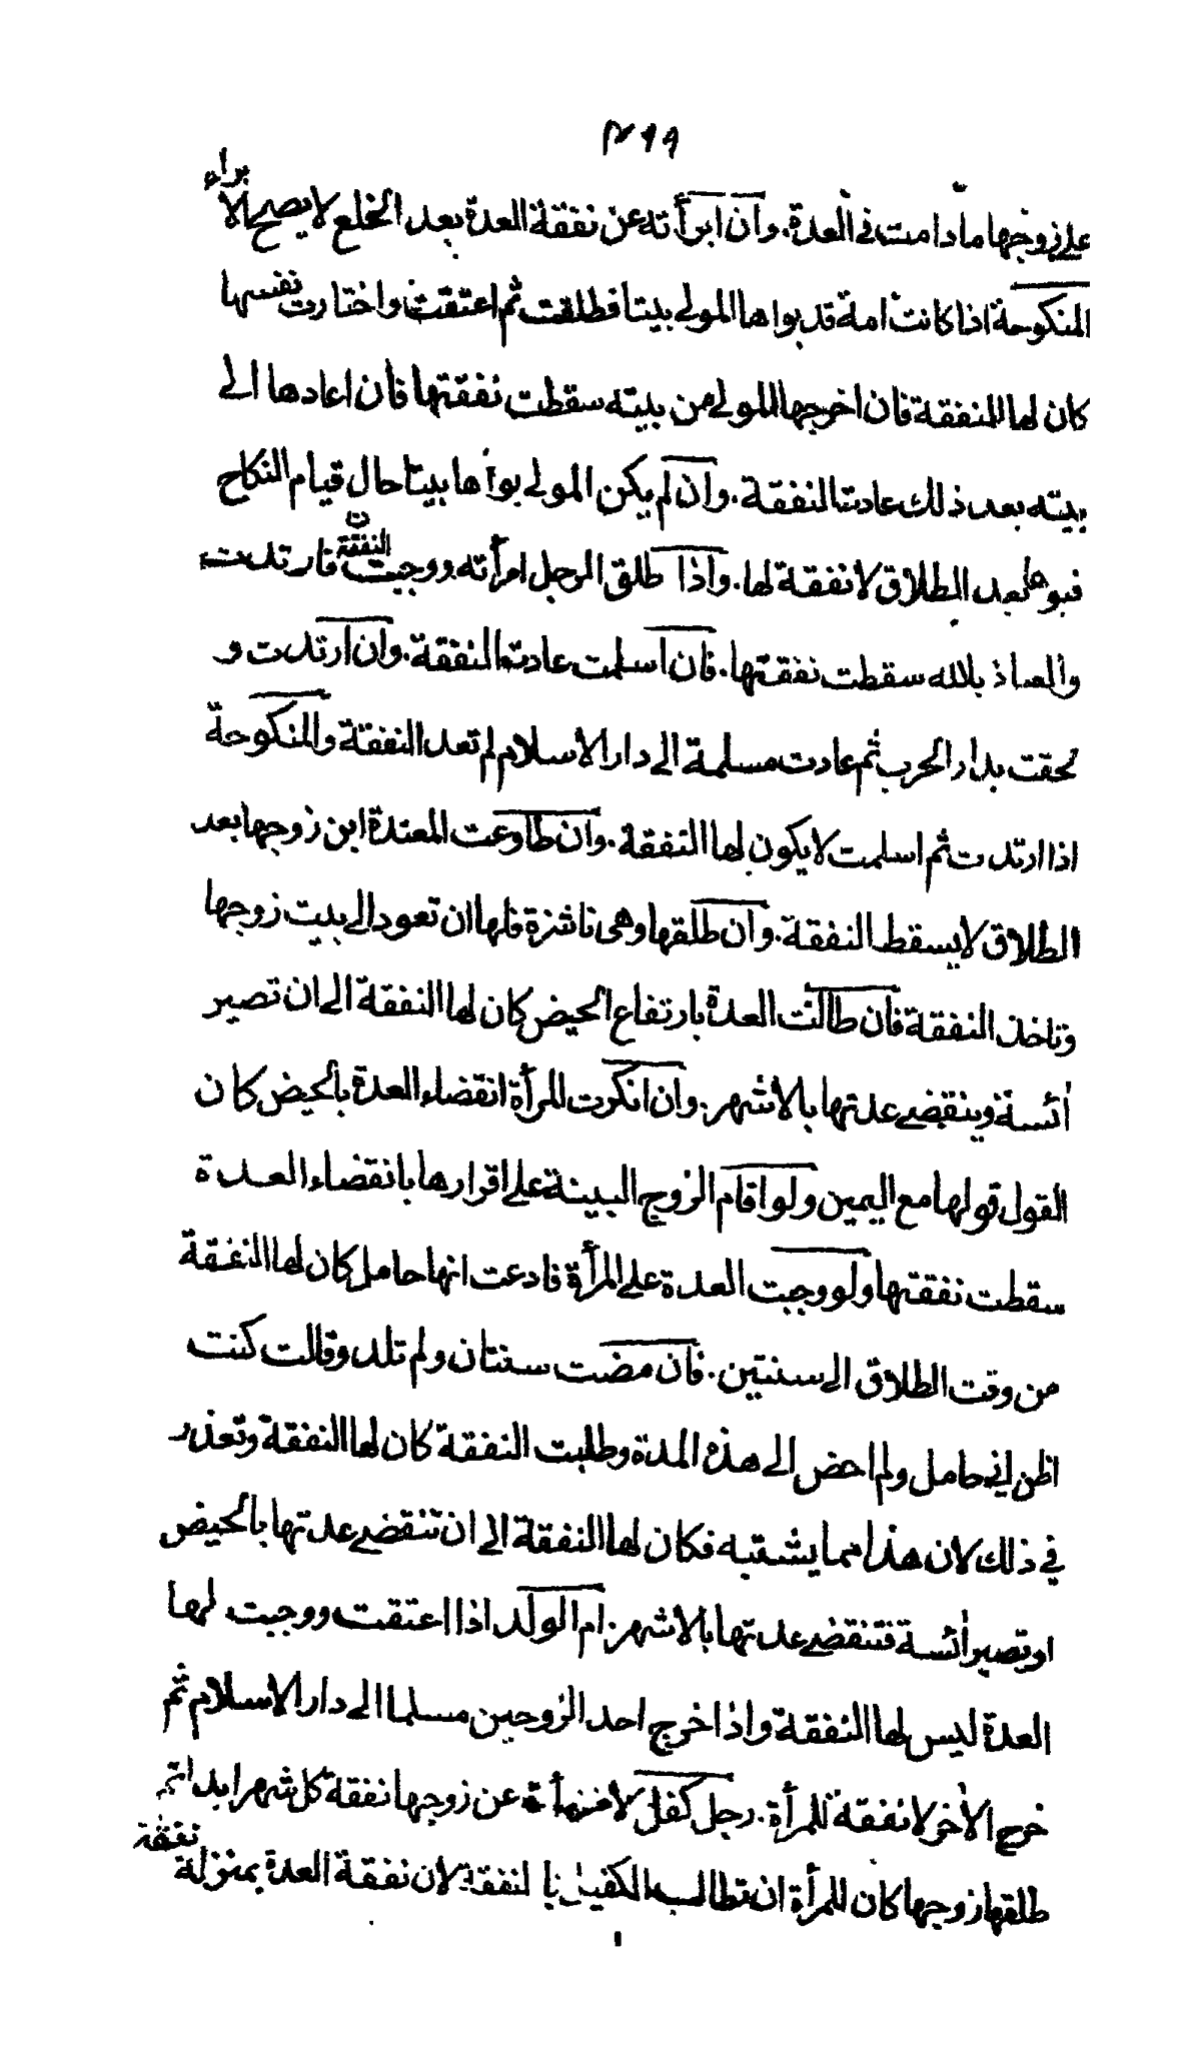 ٤٩٩
على زوجها ما دامت في العدة. وان ابرأته عن نفقة العدة بعد الخلع لا يصح الابراء
المنكوحة اذا كانت امة قد بواها المولى بيتا فطلقت ثم اعتقت واختارت نفسها
كان لها النفقة فان اخرجها المولى من بيته سقطت نفقتها فان اعادها الى
بيته بعد ذلك عادت النفقة. وان لم يكن المولى بوأها بيتا حال قيام النكاح
فبوها بعد الطلاق لا نفقة لها. واذا طلق الرجل امرأته ووجبت النفقة فارتدت
والعياذ بالله سقطت نفقتها. فان اسلمت عادت النفقة. وان ارتدت و
لحقت بدار الحرب ثم عادت مسلمة الى دار الاسلام لم تعد النفقة والمنكوحة
اذا ارتدت ثم اسلمت لا يكون لها النفقة. وان طاوعت المعتدة ابن زوجها بعد
الطلاق لا يسقط النفقة. وان طلقها وهى ناشزة فلها ان تعود الى بيت زوجها
وتاخذ النفقة فان طالت العدة بارتفاع الحيض كان لها النفقة الى ان تصير
أئسة وينقضى عدتها بالاشهر. وان انكرت المرأة انقضاء العدة بالحيض كان
القول قولها مع اليمين ولو اقام الزوج البينة على اقرارها بانقضاء العدة
سقطت نفقتها ولو وجبت العدة على المرأة فادعت انها حامل كان لها النفقة
من وقت الطلاق الى سنتين. فان مضت سنتان ولم تلد وقالت كنت
اظن اني حامل ولم احض الى هذه المدة وطلبت النفقة كان لها النفقة وتعذر
في ذلك لان هذا مما يشتبه فكان لها النفقة الى ان تنقضى عدتها بالحيض
او تصير أئسة فتنقضى عدتها بالاشهر. ام الولد اذا اعتقت ووجبت لها
العدة ليس لها النفقة واذا خرج احد الزوجين مسلما الى دار الاسلام ثم
خرج الأخر لا نفقة للمرأة. رجل كفل لامرأة عن زوجها نفقة كل شهر ابدا ثم
طلقها زوجها كان للمرأة ان تطالب الكفيل بالنفقة لان نفقة العدة بمنزلة نفقة